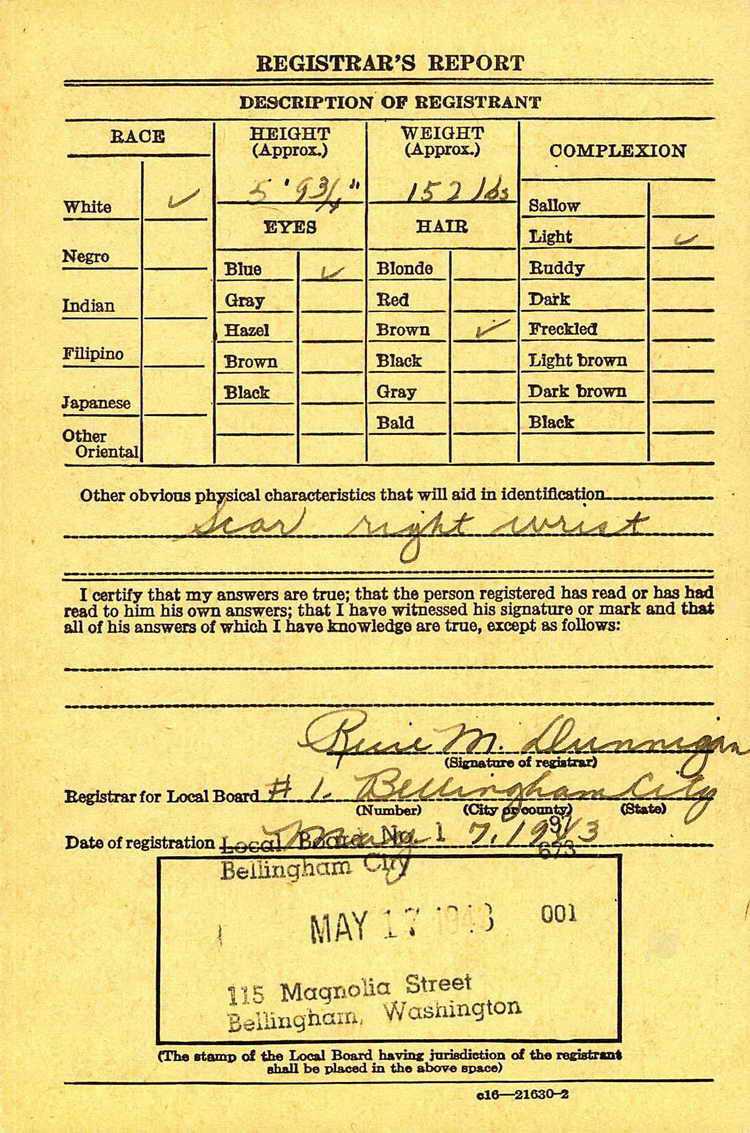 REGISTRAR'S REPORT
DESCRIPTION OF REGISTRANT
RACE
HEIGHT
(Approx.)
WEIGHT
(Approx.)
COMPLEXION
5' 9 3/4"
152 lbs
White ✓
Negro
Indian
Filipino
Japanese
Other
Oriental
EYES
Blue ✓
Gray
Hazel
Brown
Black
HAIR
Blonde
Red
Brown ✓
Black
Gray
Bald
Sallow
Light ✓
Ruddy
Dark
Freckled
Light brown
Dark brown
Black
Other obvious physical characteristics that will aid in identification
Scar right wrist
I certify that my answers are true; that the person registered has read or has had
read to him his own answers; that I have witnessed his signature or mark and that
all of his answers of which I have knowledge are true, except as follows:
M. Dunnigan
(Signature of registrar)
Registrar for Local Board # 1. Bellingham City
(Number) (City or county) (State)
Date of registration May 7, 1943
Local Board No. 1 97
673
Bellingham City
MAY 17 1943 001
115 Magnolia Street
Bellingham, Washington
(The stamp of the Local Board having jurisdiction of the registrant
shall be placed in the above space)
c16—21630-2